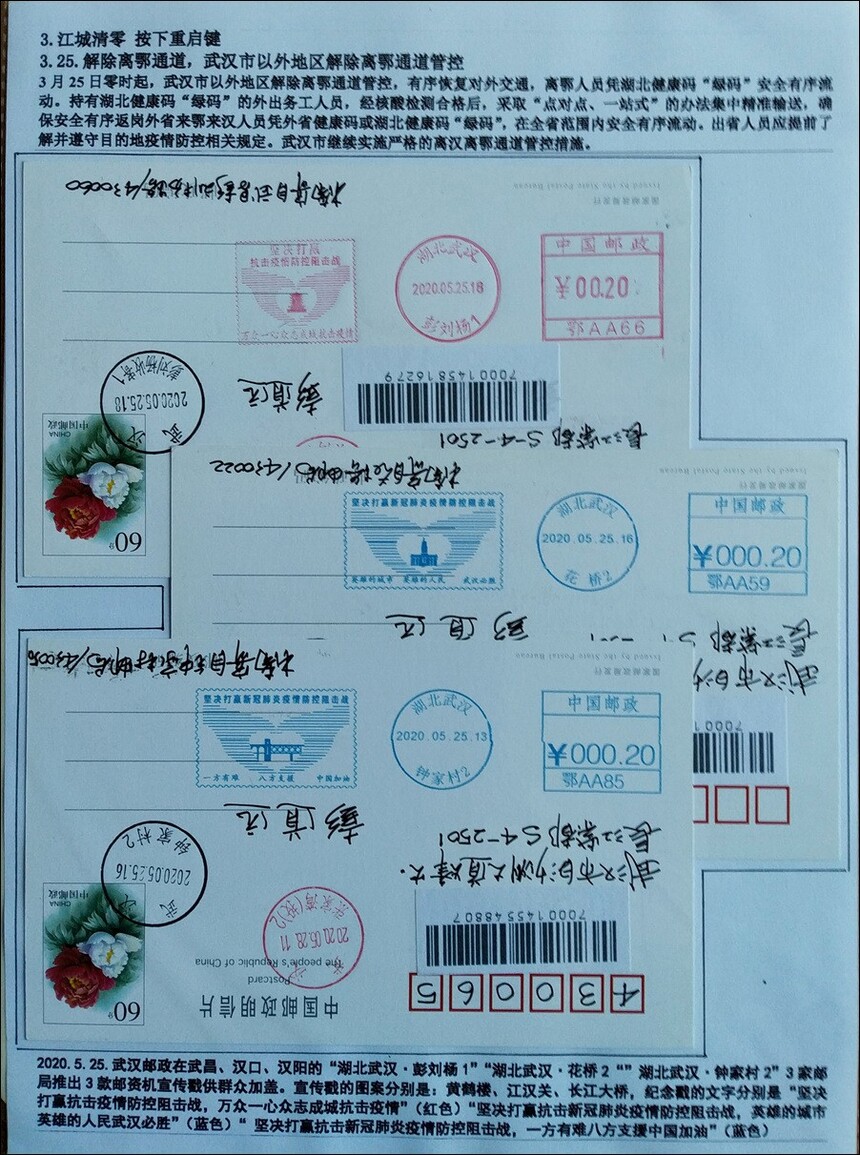 3. 江城清零 按下重启键
3.25. 解除离鄂通道，武汉市以外地区解除离鄂通道管控
3月25日零时起，武汉市以外地区解除离鄂通道管控，有序恢复对外交通，离鄂人员凭湖北健康码“绿码”安全有序流
动。持有湖北健康码“绿码”的外出务工人员，经核酸检测合格后，采取“点对点、一站式”的办法集中精准输送，确
保安全有序返岗外省来鄂来汉人员凭外省健康码或湖北健康码“绿码”，在全省范围内安全有序流动。出省人员应提前了
解并遵守目的地疫情防控相关规定。武汉市继续实施严格的离汉离鄂通道管控措施。
Issued by the State Postal Bureau
国家邮政局发行
430060
坚决打赢
抗击疫情防控阻击战
万众一心众志成城抗击疫情
湖北武汉
2020.05.25.18
彭刘杨1
中国邮政
¥00.20
鄂AA66
彭刘杨收寄1
2020.05.25.18
武汉
7000145816279
彭道运
长江紫都 S-4-2501
中国邮政
CHINA
60分
Issued by the State Postal Bureau
国家邮政局发行
430022
坚决打赢新冠肺炎疫情防控阻击战
英雄的城市 英雄的人民 武汉必胜
湖北武汉
2020.05.25.16
花桥2
中国邮政
¥000.20
鄂AA59
彭道运
长江紫都
武汉市白沙
70001
Issued by the State Postal Bureau
国家邮政局发行
坚决打赢新冠肺炎疫情防控阻击战
一方有难 八方支援 中国加油
湖北武汉
2020.05.25.13
钟家村2
中国邮政
¥000.20
鄂AA85
彭道运
长江紫都 S-4-2501
武汉市白沙洲大道烽火
钟家村2
2020.05.25.16
武汉
张家湾(投)2
2020.05.28.11
7000145548807
中国邮政
CHINA
60分
The people's Republic of China
Postcard
中国邮政明信片
430065
2020.5.25.武汉邮政在武昌、汉口、汉阳的“湖北武汉·彭刘杨1”“湖北武汉·花桥2“”湖北武汉·钟家村2”3家邮
局推出3款邮资机宣传戳供群众加盖。宣传戳的图案分别是：黄鹤楼、江汉关、长江大桥，纪念戳的文字分别是“坚决
打赢抗击疫情防控阻击战，万众一心众志成城抗击疫情”（红色）“坚决打赢抗击新冠肺炎疫情防控阻击战，英雄的城市
英雄的人民武汉必胜”（蓝色）“ 坚决打赢抗击新冠肺炎疫情防控阻击战，一方有难八方支援中国加油”（蓝色）